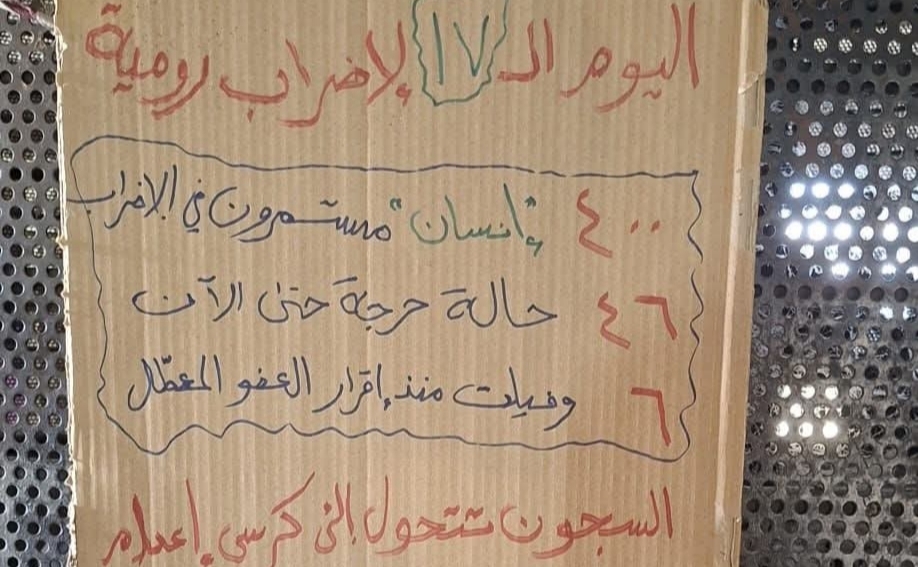 اليوم الـ ١٧ لإضراب رومية
٤٠٠ "إنسان" مستمرون في الإضراب
٤٦ حالة حرجة حتى الآن
٦ وفيات منذ إقرار العفو المعطّل
السجون تتحول إلى كرسي إعدام